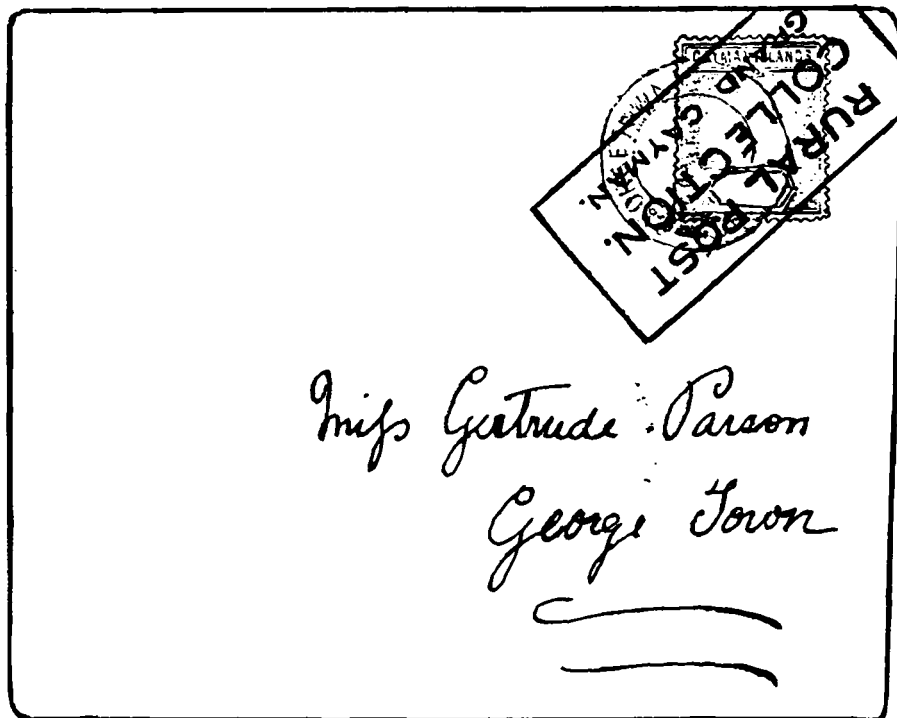 CAYMAN ISLANDS
RURAL POST
COLLECTION.
GRAND CAYMAN.
Miſs Gertrude Parson
George Town